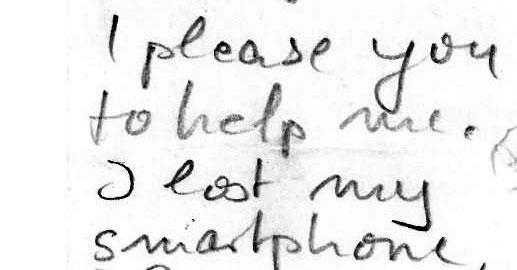 I please you
to help me.
I lost my
smartphone,